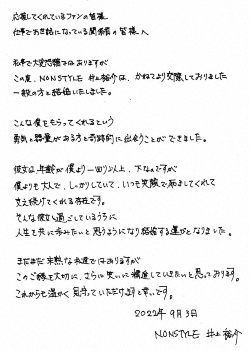 応援してくれているファンの皆様
仕事でお世話になっている関係者の皆様へ
私事で大変恐縮ではありますが
この度、NONSTYLE 井上裕介は、かねてより交際しておりました
一般の方と結婚いたしました。
こんな僕をもらってくれるという
勇気と器量がある方と奇跡的に出会うことができました。
彼女は年齢が僕より一回り以上、下なのですが
僕よりも大人で、しっかりしていて、いつも笑顔で励ましてくれて
支え続けてくれる存在です。
そんな彼女と過ごしているうちに
人生を共に歩みたいと思うようになり結婚する運びとなりました。
まだまだ未熟な私達ではありますが
このご縁を大切に、さらに笑いに精進していきたいと思っております。
これからも温かく見守っていただけますと幸いです。
2022年9月3日
NONSTYLE 井上裕介